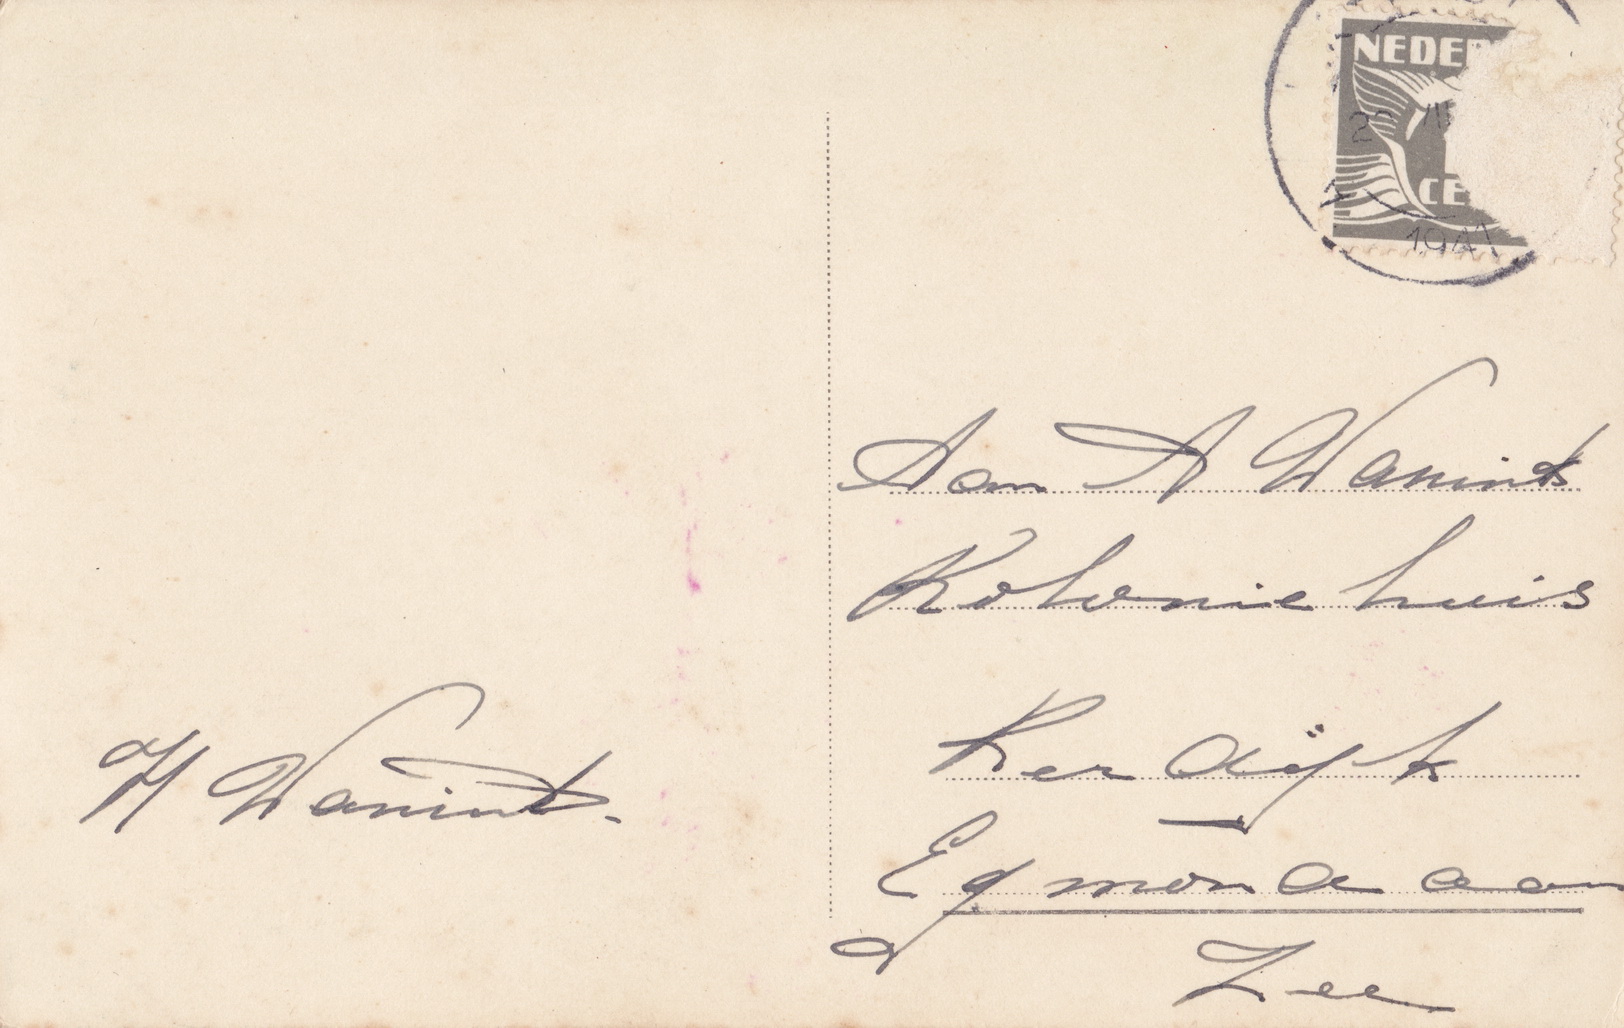 NEDER
CE
1941
Aan A Wanints
Koloniehuis
Kerdijk
Egmond aan
Zee
H Wanint.